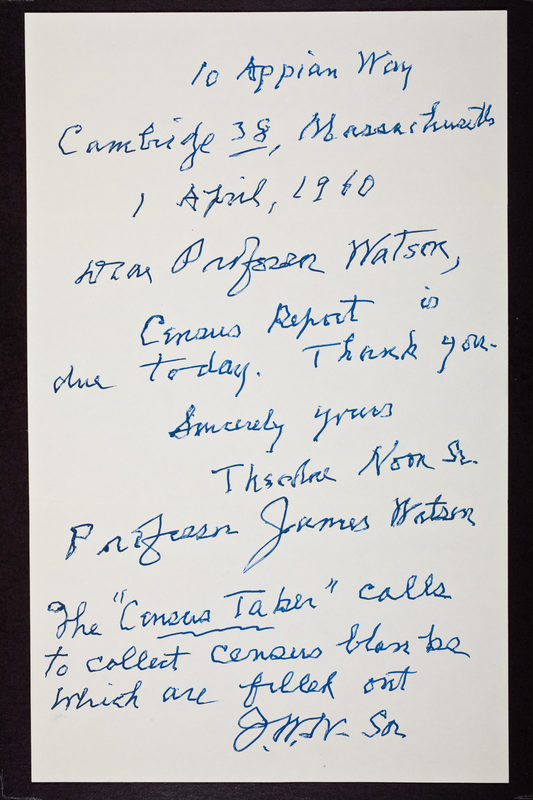 10 Appian Way
Cambridge 38, Massachusetts
1 April, 1960
Dear Professor Watson,
Census Report is
due today. Thank you.
Sincerely yours
Theodore Noon Sr.
Professor James Watson
The "Census Taker" calls
to collect census blanks
which are filled out